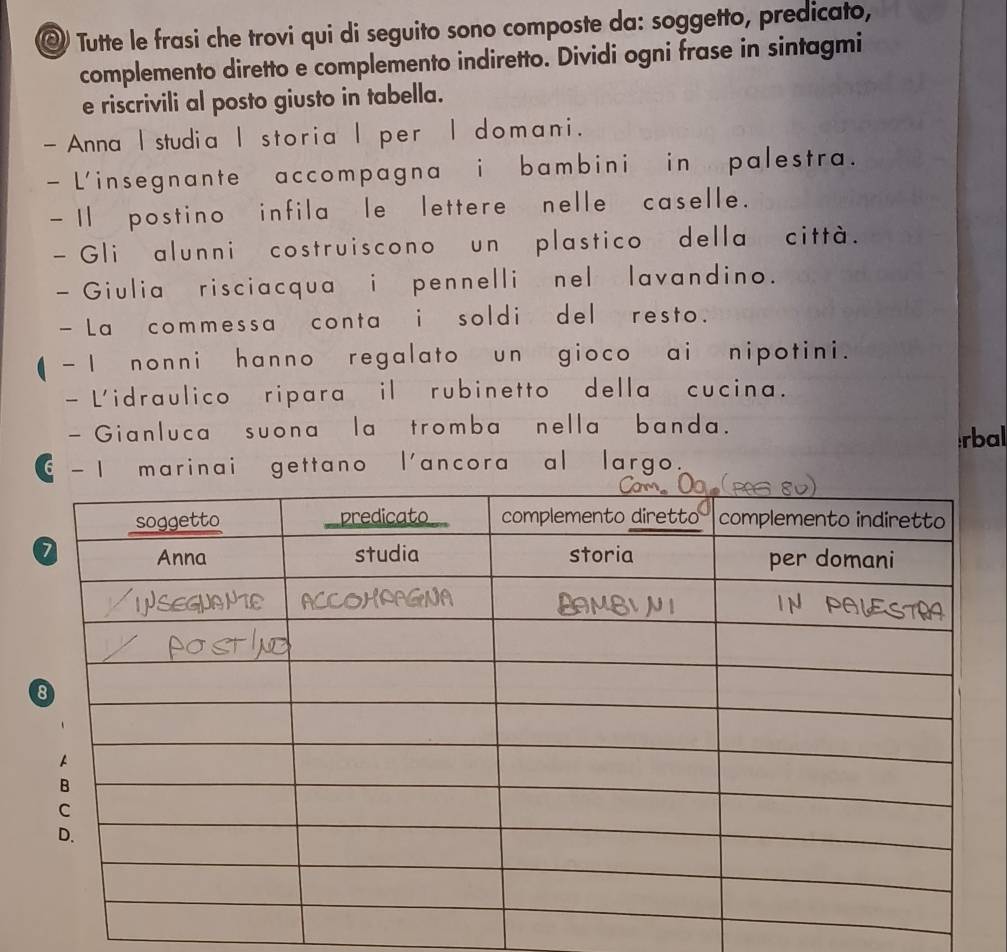 Tutte le frasi che trovi qui di seguito sono composte da: soggetto, predicato,
complemento diretto e complemento indiretto. Dividi ogni frase in sintagmi
e riscrivili al posto giusto in tabella.
- Anna | studia | storia | per | domani.
- L'insegnante accompagna i bambini in palestra.
- Il postino infila le lettere nelle caselle.
- Gli alunni costruiscono un plastico della città.
- Giulia risciacqua i pennelli nel lavandino.
- La commessa conta i soldi del resto.
- I nonni hanno regalato un gioco ai nipotini.
- L'idraulico ripara il rubinetto della cucina.
- Gianluca suona la tromba nella banda.
rbal
6 - I marinai gettano l'ancora al largo.
Com. Og. (PAG 80)
soggetto predicato complemento diretto complemento indiretto
7 Anna studia storia per domani
INSEGNANTE ACCOMPAGNA BAMBINI IN PALESTRA
POSTINO
8
B
C
D.